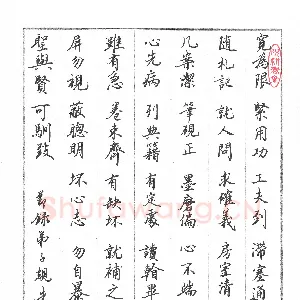 寬為限 緊用功 工夫到 滯塞通
隨札記 就人問 求確義 房室清
几案潔 筆硯正 墨磨偏 心不端
心先病 列典籍 有定處 讀看畢
雖有急 卷束齊 有缺坏 就補之
屏勿視 蔽聰明 坏心志 勿自暴
聖與賢 可馴致 弟子規
Shufawang.cn